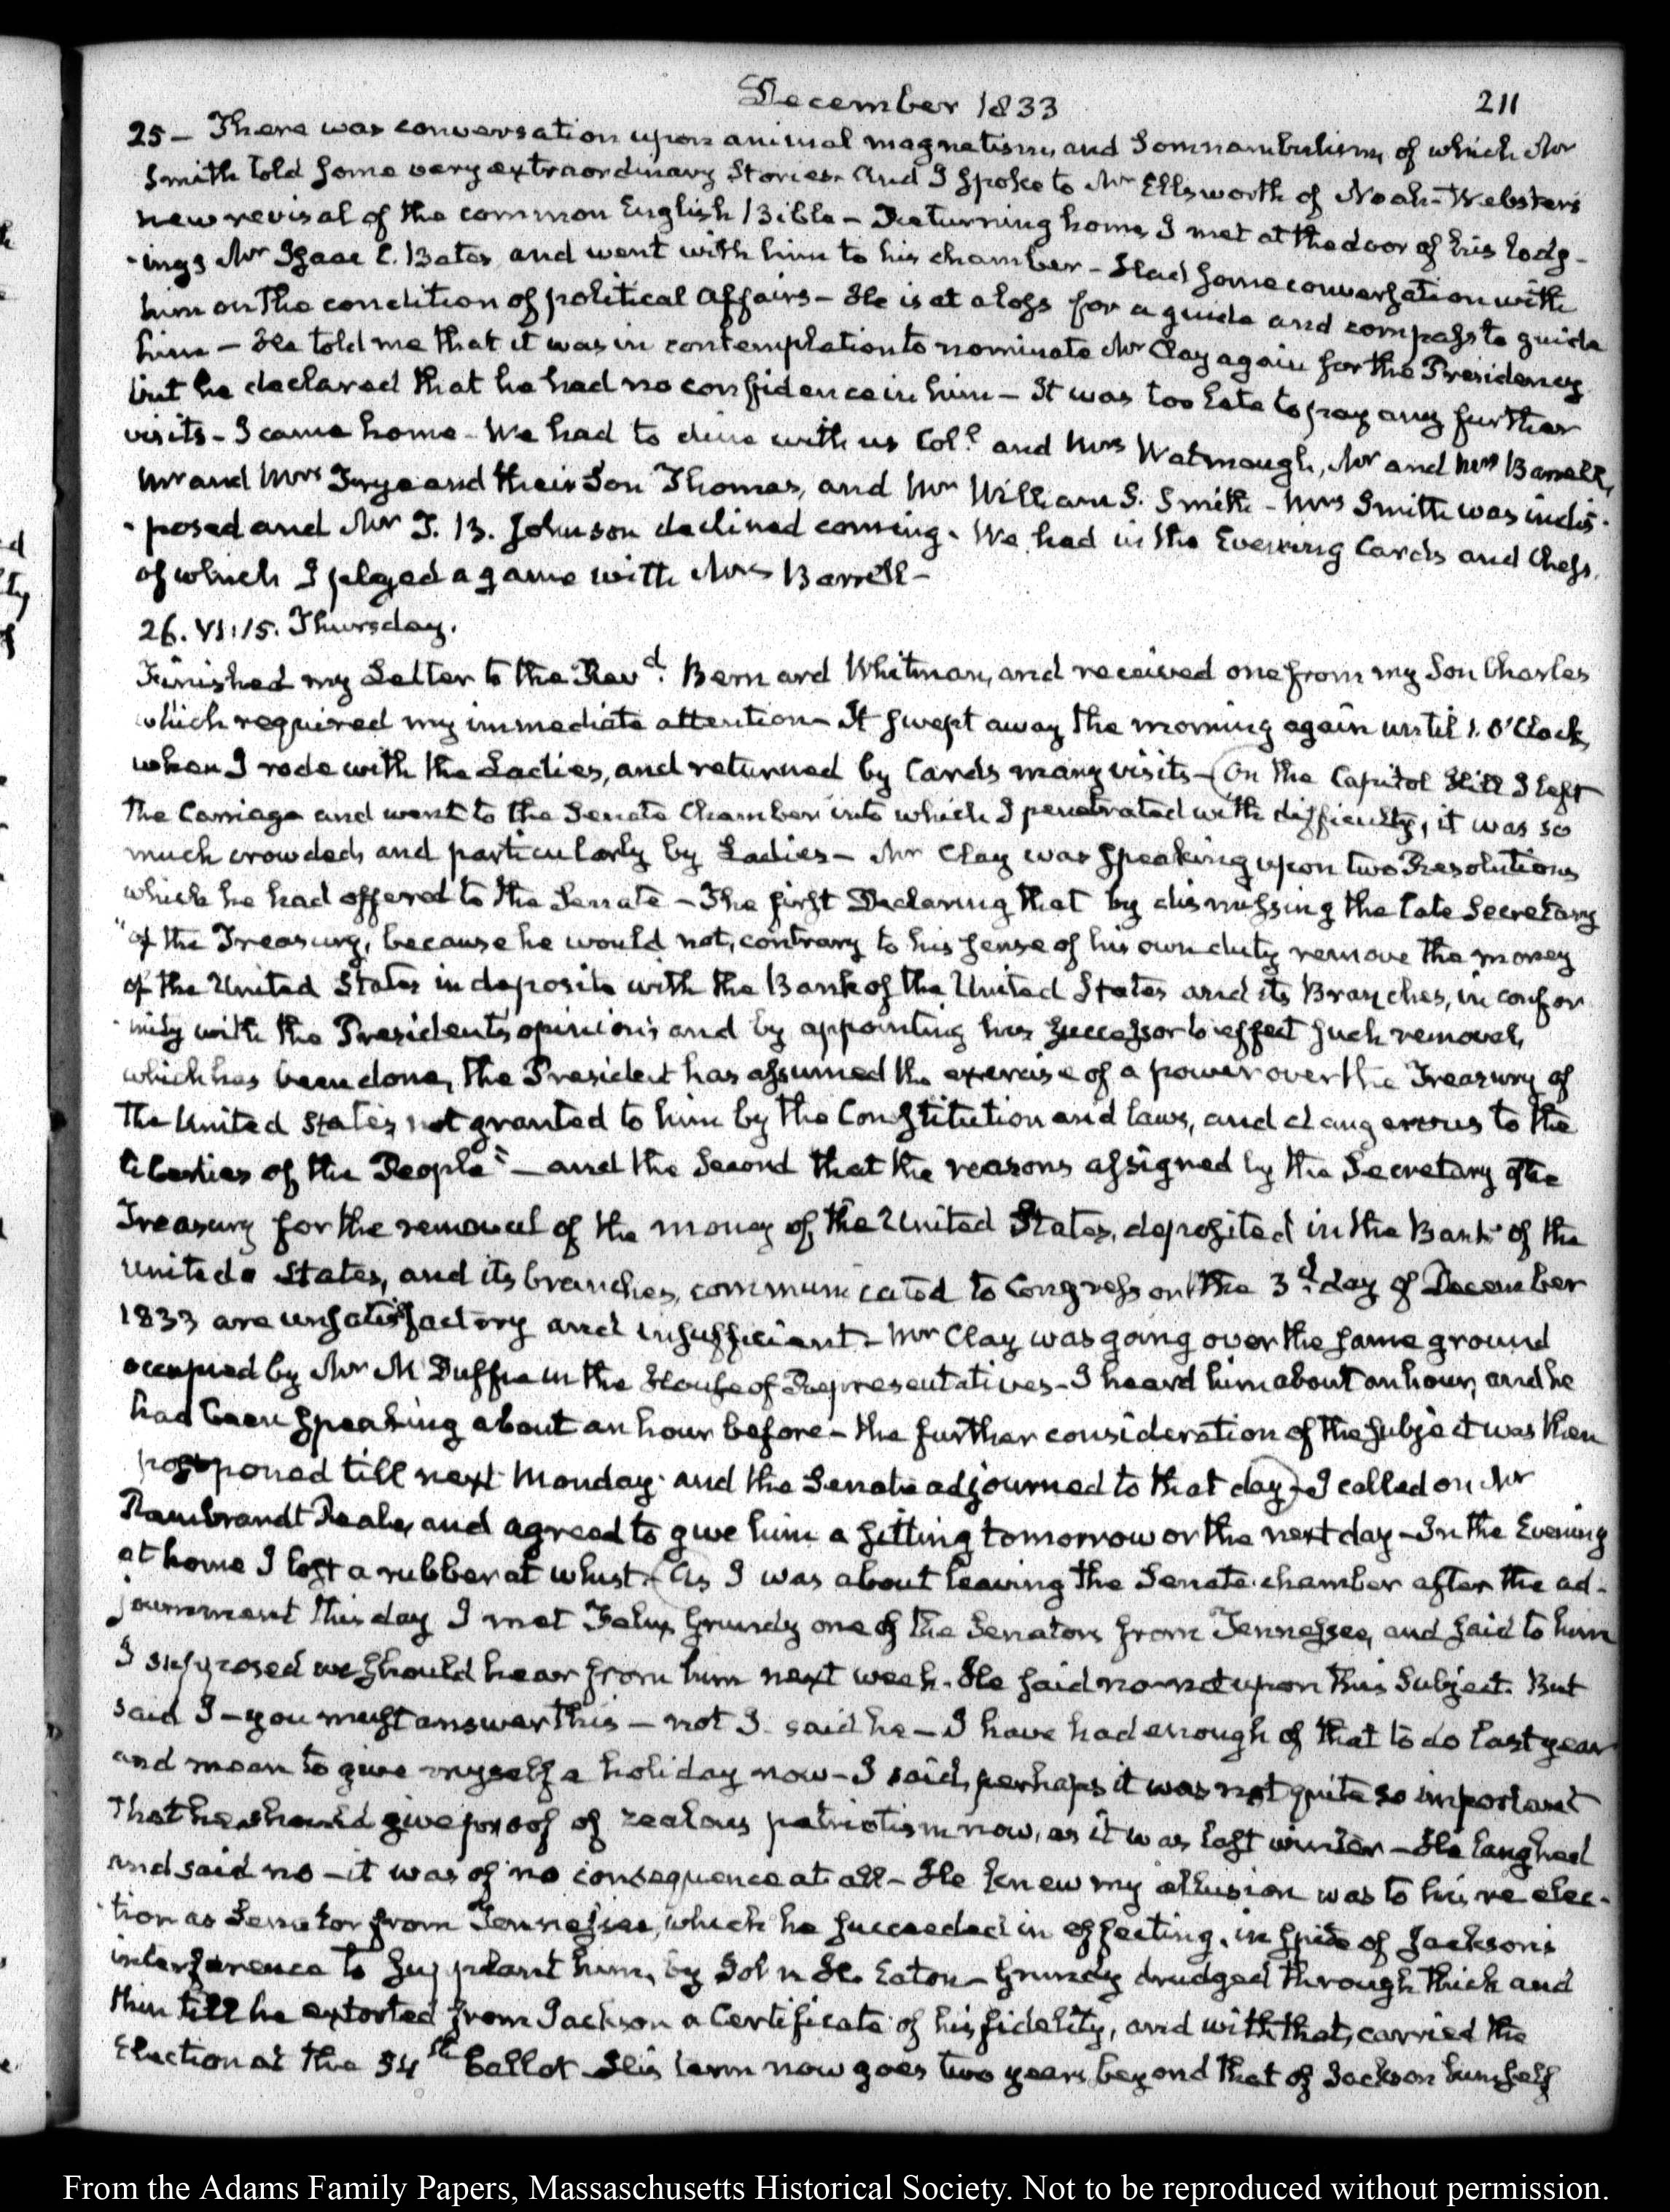 December 1833
211
25 - There was conversation upon animal magnetism, and Somnambulism, of which Mr
Smith told some very extraordinary Stories. And I spoke to Mr Ellsworth of Noah Webster's
new revisal of the common English Bible - Returning home, I met at the door of his lodg-
-ings Mr Isaac C. Bates, and went with him to his chamber - Had some conversation with
him on the condition of political Affairs - He is at a loss for a guide and compass to guide
him - He told me that it was in contemplation to nominate Mr Clay again for the Presidency
but he declared that he had no confidence in him - It was too late to pay any further
visits - I came home - We had to dine with us Coll. and Mrs Watmough, Mr and Mrs Barrell,
Mr and Mrs Frye and their Son Thomas, and Mr William S. Smith - Mrs Smith was indis-
-posed and Mr T. B. Johnson declined coming. We had in the Evening Cards and Chess.
of which I played a game with Mrs Barrell -
26. VI:15. Thursday.
Finished my Letter to the Revd. Bernard Whitman, and received one from my Son Charles
which required my immediate attention - It swept away the morning again until 1. O'Clock,
when I rode with the Ladies, and returned by Cards many visits - (On the Capitol Hill I left
the Carriage and went to the Senate Chamber into which I penetrated with difficulty, it was so
much crowded, and particularly by Ladies - Mr Clay was speaking upon two Resolutions
which he had offered to the Senate - The first Declaring that by dismissing the late Secretary
"of the Treasury, because he would not, contrary to his sense of his own duty remove the money
of the United States in deposite with the Bank of the United States and its Branches, in confor
-mity with the President's opinion; and by appointing his successor to effect such removal,
which has been done, the President has assumed the exercise of a power over the Treasury of
the United States, not granted to him by the Constitution and laws, and dangerous to the
liberties of the People" - and the Second that the reasons assigned by the Secretary of the
Treasury for the removal of the money of the United States, deposited in the Bank of the
United States, and its branches, communicated to Congress on the 3d. day of December
1833 are unsatisfactory and insufficient - Mr Clay was going over the same ground
occupied by Mr McDuffie in the House of Representatives - I heard him about an hour, and he
had been speaking about an hour before - the further consideration of the subject was then
postponed till next Monday and the Senate adjourned to that day) - I called on Mr
Rembrandt Peale, and agreed to give him a sitting tomorrow or the next day - In the Evening
at home I lost a rubber at whist - (As I was about leaving the Senate chamber after the ad-
journment this day I met Felix Grundy one of the Senators from Tennessee, and said to him
I supposed we should hear from him next week. He said no - not upon this Subject. But
said I - you must answer this - not I. said he - I have had enough of that to do last year
and mean to give myself a holiday now - I said, perhaps it was not quite so important
that he should give proof of zealous patriotism now, as it was last winter - He laughed
and said no - it was of no consequence at all - He knew my allusion was to his re elec-
-tion as Senator from Tennessee, which he succeeded in effecting, in spite of Jackson's
interference to supplant him, by John H. Eaton - Grundy drudged through thick and
thin till he extorted from Jackson a Certificate of his fidelity, and with that, carried the
Election at the 54th ballot. His term now goes two years beyond that of Jackson himself
From the Adams Family Papers, Massachusetts Historical Society. Not to be reproduced without permission.